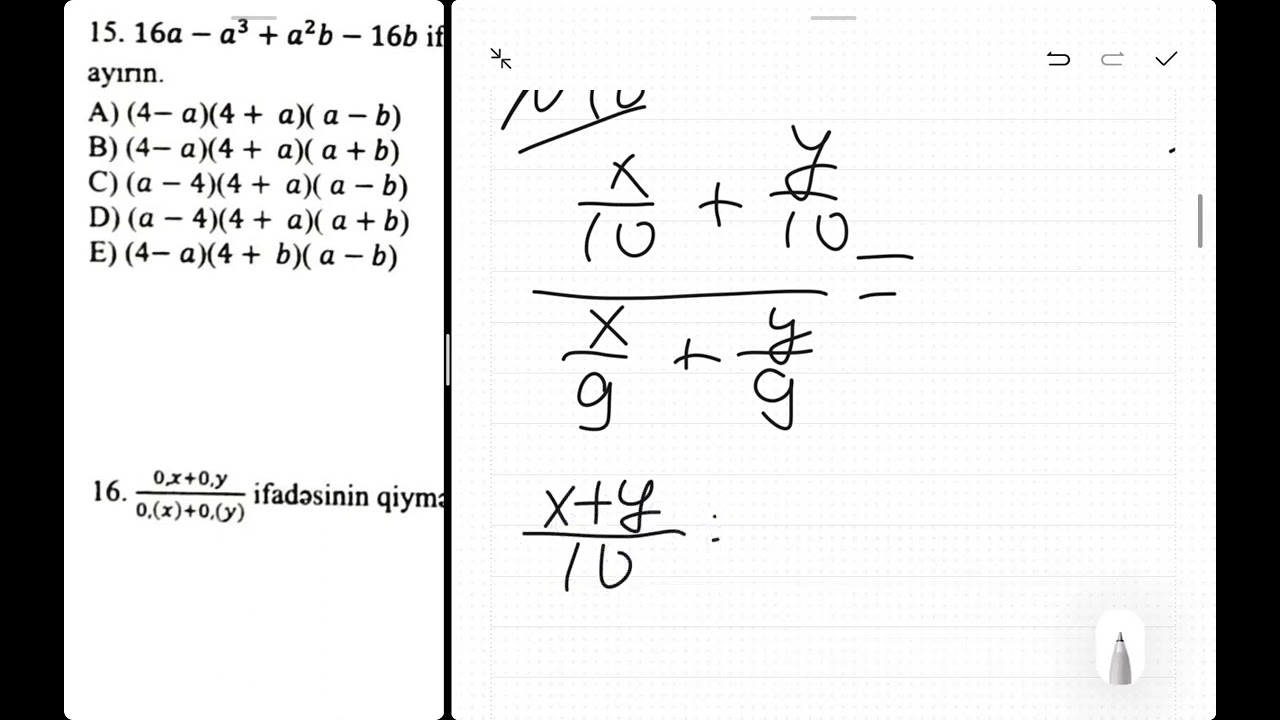 15. 16a − a³ + a²b − 16b if
ayırın.
A) (4− a)(4 + a)( a − b)
B) (4− a)(4 + a)( a + b)
C) (a − 4)(4 + a)( a − b)
D) (a − 4)(4 + a)( a + b)
E) (4− a)(4 + b)( a − b)
16. 0,x+0,y / 0,(x)+0,(y) ifadəsinin qiymə
x/10 + y/10 =
x/9 + y/9
x+y/10 :